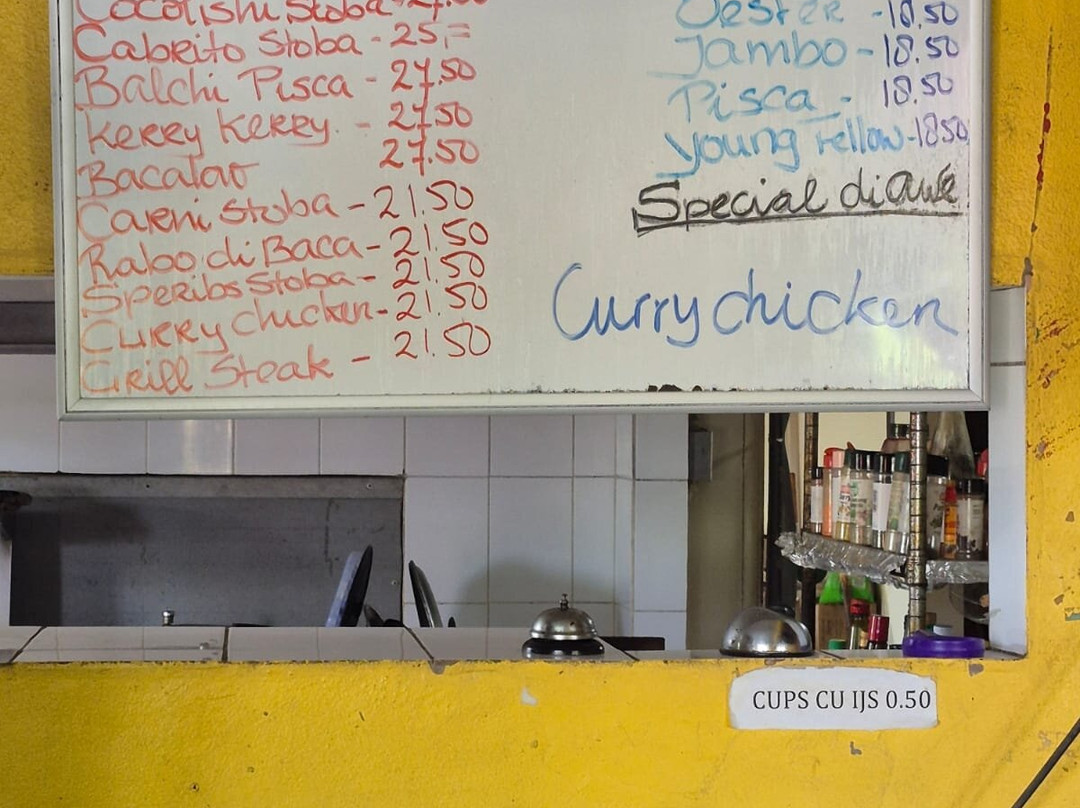 Cocolishi Stoba
Cabrito Stoba - 25,=
Balchi Pisca - 27.50
Kerry Kerry. - 27.50
Bacalao 27.50
Carni Stoba - 21.50
Rabo di Baca - 21.50
Speribs Stoba - 21.50
Curry chicken - 21.50
Grill Steak - 21.50
Oester - 18.50
Jambo - 18.50
Pisca - 18.50
young Yellow - 18.50
Special di Awe
Curry chicken
CUPS CU IJS 0.50